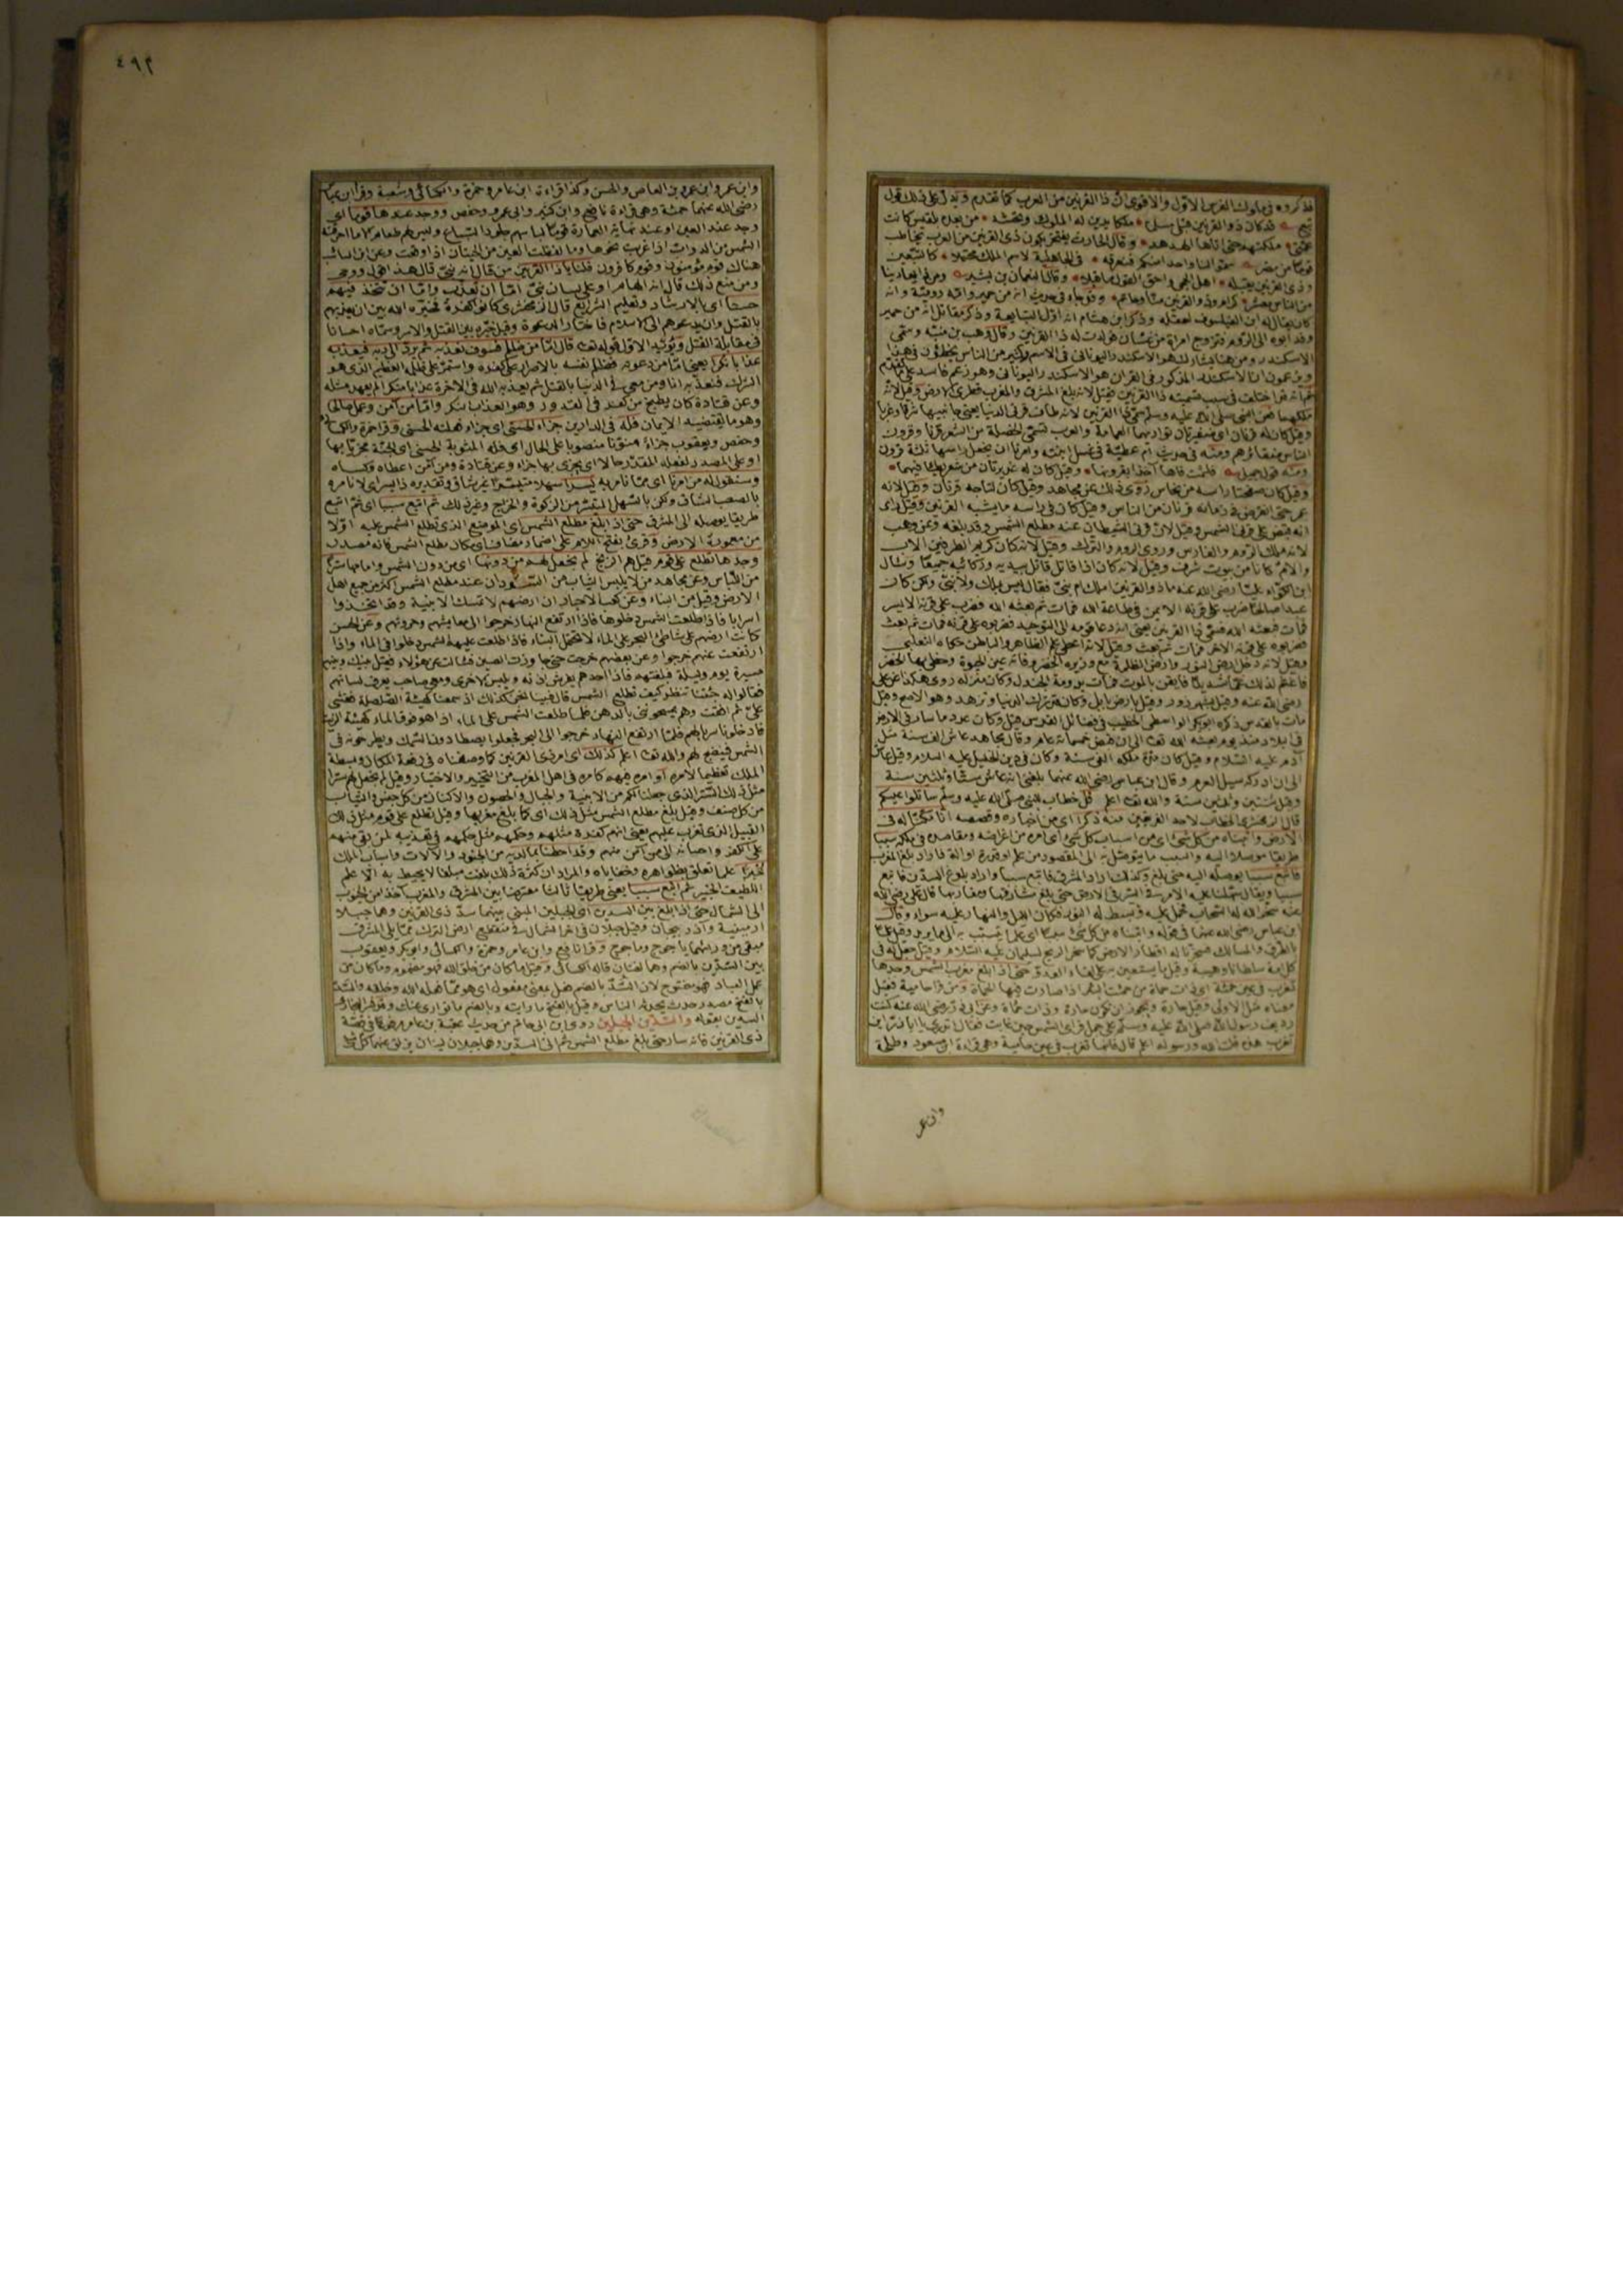 فذكروه في ملوك الفرس الاول والاقوى ان ذا القرنين من العرب كما تقدم ويدل على ذلك قول
تبع قد كان ذو القرنين قبلي مسلما ملكا تدين له الملوك وتحشد من بعده بلقيس كانت
عمتي ملكتهم حتى اتاها الهدهد وقال الحارث يفتخر بكون ذي القرنين من العرب يخاطب
قوما من مضر سموا لنا واحدا منكم فنعرفه في الجاهلية لاسم الملك محتملا كالتبعين
وذي القرنين يقبله اهل الحجى واحق القول ما قبلا وقال النعمان بن بشير ومن ذا يعادينا
من الناس معشر كرام وذو القرنين منا وحاتم
وقد ابوه الى الروم فتزوج امراة من غسان فولدت له ذا القرنين وقال وهب بن منبه وسمي
الاسكندر ومن هنا يشارك هو الاسكندر اليوناني في الاسم وكثير من الناس يخطؤن في هذا
ويزعمون ان الاسكندر المذكور في القران هو الاسكندر اليوناني وهو زعم فاسد على ما تقدم
ثم انه قد اختلف في سبب تسميته ذا القرنين فقيل لانه بلغ المشرق والمغرب قطري الارض وقيل لانه
ملكهما فعن النبي صلى الله عليه وسلم سمي ذا القرنين لانه طاف قرني الدنيا يعني جانبيها شرقا وغربا
وقيل كان له قرنان اي ضفيرتان تواريهما العمامة والعرب تسمي الخصلة من الشعر قرنا وقرون
ومنه قول جميل فلثمت فاها آخذا بقرونها وقيل كان له
وقيل كان صفحتا راسه من نحاس روي ذلك عن مجاهد وقيل كان لتاجه قرنان وقيل لانه
عمر حتى انقرض في زمانه قرنان من الناس وقيل كان في راسه ما يشبه القرنين وقيل راى
انه قبض على قرني الشمس وقيل لان قرني الشيطان عند مطلع الشمس وقد بلغه وعن وهب
لانه ملك الروم والفارس وروي الروم والترك وقيل لانه كان كريم الطرفين الاب
والام كانا من بيوت شرف وقيل لانه كان اذا قاتل قاتل بيديه وركابيه جميعا وسال
ابن الكواء عليا رضي الله عنه ما ذو القرنين املك ام نبي فقال ليس بملك ولا نبي ولكن كان
عبدا صالحا ضرب على قرنه الايمن في طاعة الله فمات ثم بعثه الله فضرب على قرنه الايسر
فمات فبعثه الله فسمي ذا القرنين يعني انه دعا قومه الى التوحيد فضربوه على قرنه فمات ثم بعث
فضربوه على قرنه الاخر فمات ثم بعث وقيل لانه اعطي علم الظاهر والباطن حكاه الثعلبي
وقيل لانه دخل ارض النور وارض الظلمة مع وزيره الخضر وفاته عين الحيوة وحظي بها الخضر
فاغتم لذلك غما شديدا فايقن بالموت فمات بدومة الجندل وكان منزله روي هكذا عن علي
رضي الله عنه وقيل بشهرزور وقيل بارض بابل وكان قد ترك الدنيا وتزهد وهو الاصح وقيل
مات بالقدس ذكره ابو بكر الواسطي الخطيب في فضائل القدس قيل وكان عدد ما سار في الارض
في البلاد منذ يوم بعثه الله تعالى الى ان قبض خمسمائة عام وقال مجاهد عاش الف سنة مثل
آدم عليه السلام وقيل كان مدة ملكه الفي سنة وكان في دين الخليل عليه السلام وقيل عاش
الى ان ادركه سيل العرم وقال ابن عباس رضي الله عنهما بلغني انه عاش ستا وثلثين سنة
وقيل ثنتين وثلثين سنة والله تعالى اعلم قل خطاب للنبي صلى الله عليه وسلم ساتلوا عليكم
قال الزمخشري الخطاب لاحد الفريقين منه ذكرا اي من اخباره وقصصه انا مكنا له في
الارض وآتيناه من كل شيء اي من اسباب كل شيء اي امره من اغراضه ومقاصده في ملكه سببا
طريقا موصلا اليه والسبب ما يتوصل به الى المقصود من علم او قدرة او آلة فاراد بلوغ المغرب
فاتبع سببا يوصله اليه حتى بلغ وكذلك اراد المشرق فاتبع سببا واراد بلوغ السدين فاتبع
سببا ويقال سهلنا عليه الامر في السير في الارض حتى بلغ مشارقها ومغاربها قال علي رضي الله
عنه سخر الله له السحاب فحمل عليه وبسط له النور فكان الليل والنهار عليه سواء وقال
ابن عباس رضي الله عنهما في قوله وآتيناه من كل شيء سببا اي علما يتسبب به الى ما يريد وقيل علما
بالطرق والمسالك فسخرنا له اقطار الارض كما سخر الريح لسليمان عليه السلام وقيل جعل له في
كل امة سلطانا وهيبة وقيل ما يستعين به على لقاء العدو حتى اذا بلغ مغرب الشمس وجدها
تغرب في عين حمئة اي ذات حماة من حمئت البئر اذا صارت فيها الحماة ومن قرا حامية فقيل
معناه مثل الاولى وقيل حارة ويجوز ان تكون حارة وذات حماة وعن ابي ذر رضي الله عنه كنت
رديف رسول الله صلى الله عليه وسلم على جمل فراى الشمس حين غابت فقال اتدري يا ابا ذر اين
تغرب هذه قلت الله ورسوله اعلم قال فانها تغرب في عين حامية وهي قراءة ابن مسعود وطلحة
وابن عمر
٤٩٣
وابن عمر وابن عمرو بن العاص والحسن وكذا قراءة ابن عامر وحمزة والكسائي وشعبة وقرا ابن عباس
رضي الله عنهما حمئة وهي قراءة نافع وابن كثير وابي عمرو وحفص ووجد عندها قوما اي
وجد عند العين او عند نهاية العمارة قوما لباسهم جلود السباع وليس لهم طعام الا ما احرقته
الشمس من الدواب اذا غربت نحوها وما لفظت العين من الحيتان اذا وقعت وعن ابن السائب
هناك قوم مؤمنون وقوم كافرون قلنا يا ذا القرنين من قال انه نبي قال هذا القول وحي
ومن منع ذلك قال انه الهام او على لسان نبي اما ان تعذب واما ان تتخذ فيهم
حسنا اي بالارشاد وتعليم الشرايع قال الزمخشري كانوا كفرة فخيره الله بين ان يعذبهم
بالقتل وان يدعوهم الى الاسلام فاختار الدعوة وقيل خيره بين القتل والاسر وسماه احسانا
في مقابلة القتل ويؤيد الاول قوله تعالى قال اما من ظلم فسوف نعذبه ثم يرد الى ربه فيعذبه
عذابا نكرا يعني اما من دعوته فظلم نفسه بالاصرار على كفره واستمر على ظلمه العظيم الذي هو
الشرك فنعذبه انا ومن معي في الدنيا بالقتل ثم يعذبه الله في الاخرة عذابا منكرا لم يعهد مثله
وعن قتادة كان يطبخ من كفر في القدور وهو العذاب النكر واما من آمن وعمل صالحا
وهو ما يقتضيه الايمان فله في الدارين جزاء الحسنى اي جزاء فعلته الحسنى وقرا حمزة والكسائي
وحفص ويعقوب جزاء منونا منصوبا على الحال اي فله المثوبة الحسنى اي الجنة مجزيا بها
او على المصدر لفعله المقدر حالا اي يجزى بها جزاء وعن قتادة ومن آمن اعطاه وكساه
وسنقول له من امرنا اي مما نامر به يسرا سهلا متيسرا غير شاق وتقديره ذا يسر اي لا نامره
بالصعب الشاق ولكن بالسهل المتيسر من الزكوة والخراج وغير ذلك ثم اتبع سببا اي ثم اتبع
طريقا يوصله الى المشرق حتى اذا بلغ مطلع الشمس اي الموضع الذي تطلع الشمس عليه اولا
من معمورة الارض وقرئ بفتح اللام على اضمار مضاف اي مكان مطلع الشمس فانه مصدر
وجدها تطلع على قوم قيل هم الزنج لم نجعل لهم من دونها اي من دون الشمس وامامها سترا
من اللباس وعن مجاهد من لا يلبس الثياب من السودان عند مطلع الشمس اكثر من جميع اهل
الارض وقيل من البناء وعن كعب الاحبار ان ارضهم لا تمسك الابنية وقد اتخذوا
اسرابا فاذا طلعت الشمس دخلوها فاذا ارتفع النهار خرجوا الى معايشهم وحروثهم وعن الحسن
كانت ارضهم على شاطئ البحر على الماء لا تحتمل البناء فاذا طلعت عليهم الشمس دخلوا في الماء واذا
ارتفعت عنهم خرجوا وعن بعضهم خرجت حتى جاوزت الصين فسالت عن هؤلاء فقيل بينك وبينهم
مسيرة يوم وليلة فبلغتهم فاذا احدهم يفرش اذنه ويلبس الاخرى ومعي صاحب يعرف لسانهم
فقالوا له جئتنا تنظر كيف تطلع الشمس قال فبينا نحن كذلك اذ سمعنا كهيئة الصلصلة فغشي
علي ثم افقت وهم يمسحونني بالدهن فلما طلعت الشمس على الماء اذا هو فوق الماء كهيئة الزيت
فادخلونا سربا لهم فلما ارتفع النهار خرجوا الى البحر فجعلوا يصطادون السمك ويطرحونه في
الشمس فينضج لهم والله تعالى اعلم كذلك اي امر ذي القرنين كما وصفناه في رفعة المكان وبسطة
الملك تعظيما لامره او امره فيهم كامره في اهل المغرب من التخيير والاختيار وقيل لم نجعل لهم سترا
مثل ذلك الستر الذي جعلنا لكم من الابنية والجبال والحصون والاكنان من كل جنس والثياب
من كل صنف وقيل بلغ مطلع الشمس مثل ذلك اي كما بلغ مغربها وقيل تطلع على قوم مثل ذلك
القبيل الذي تغرب عليهم يعني انهم كفرة مثلهم وحكمهم مثل حكمهم في تعذيبه لمن بقي منهم
على الكفر واحسانه الى من آمن منهم وقد احطنا بما لديه من الجنود والآلات واسباب الملك
خبرا علما تعلق بظواهره وخفاياه والمراد ان كثرة ذلك بلغت مبلغا لا يحيط به الا علم
اللطيف الخبير ثم اتبع سببا يعني طريقا ثالثا معترضا بين المشرق والمغرب آخذا من الجنوب
الى الشمال حتى اذا بلغ بين السدين اي الجبلين المبني بينهما سد ذي القرنين وهما جبلا
ارمينية وآذربيجان وقيل جبلان في اخر الشمال في منقطع ارض الترك مما يلي المشرق
من ورائهما ياجوج وماجوج وقرا نافع وابن عامر وحمزة والكسائي وابو بكر ويعقوب
بين السدين بالضم وهما لغتان قاله الكسائي وقيل ما كان من خلق الله فهو مضموم وما كان من
عمل العباد فهو مفتوح لان السد بالضم فعل بمعنى مفعول اي هو مما فعله الله وخلقه والسد
بالفتح مصدر حدث يحدثه الناس وقيل بالفتح ما رايته وبالضم ما توارى عنك
السدين بقوله والسدين الجبلين روى ابن ابي حاتم من حديث عقبة بن عامر مرفوعا في قصة
ذي القرنين فانه سار حتى بلغ مطلع الشمس ثم اتى السدين وهما جبلان لينان يزلق عنهما كل شيء